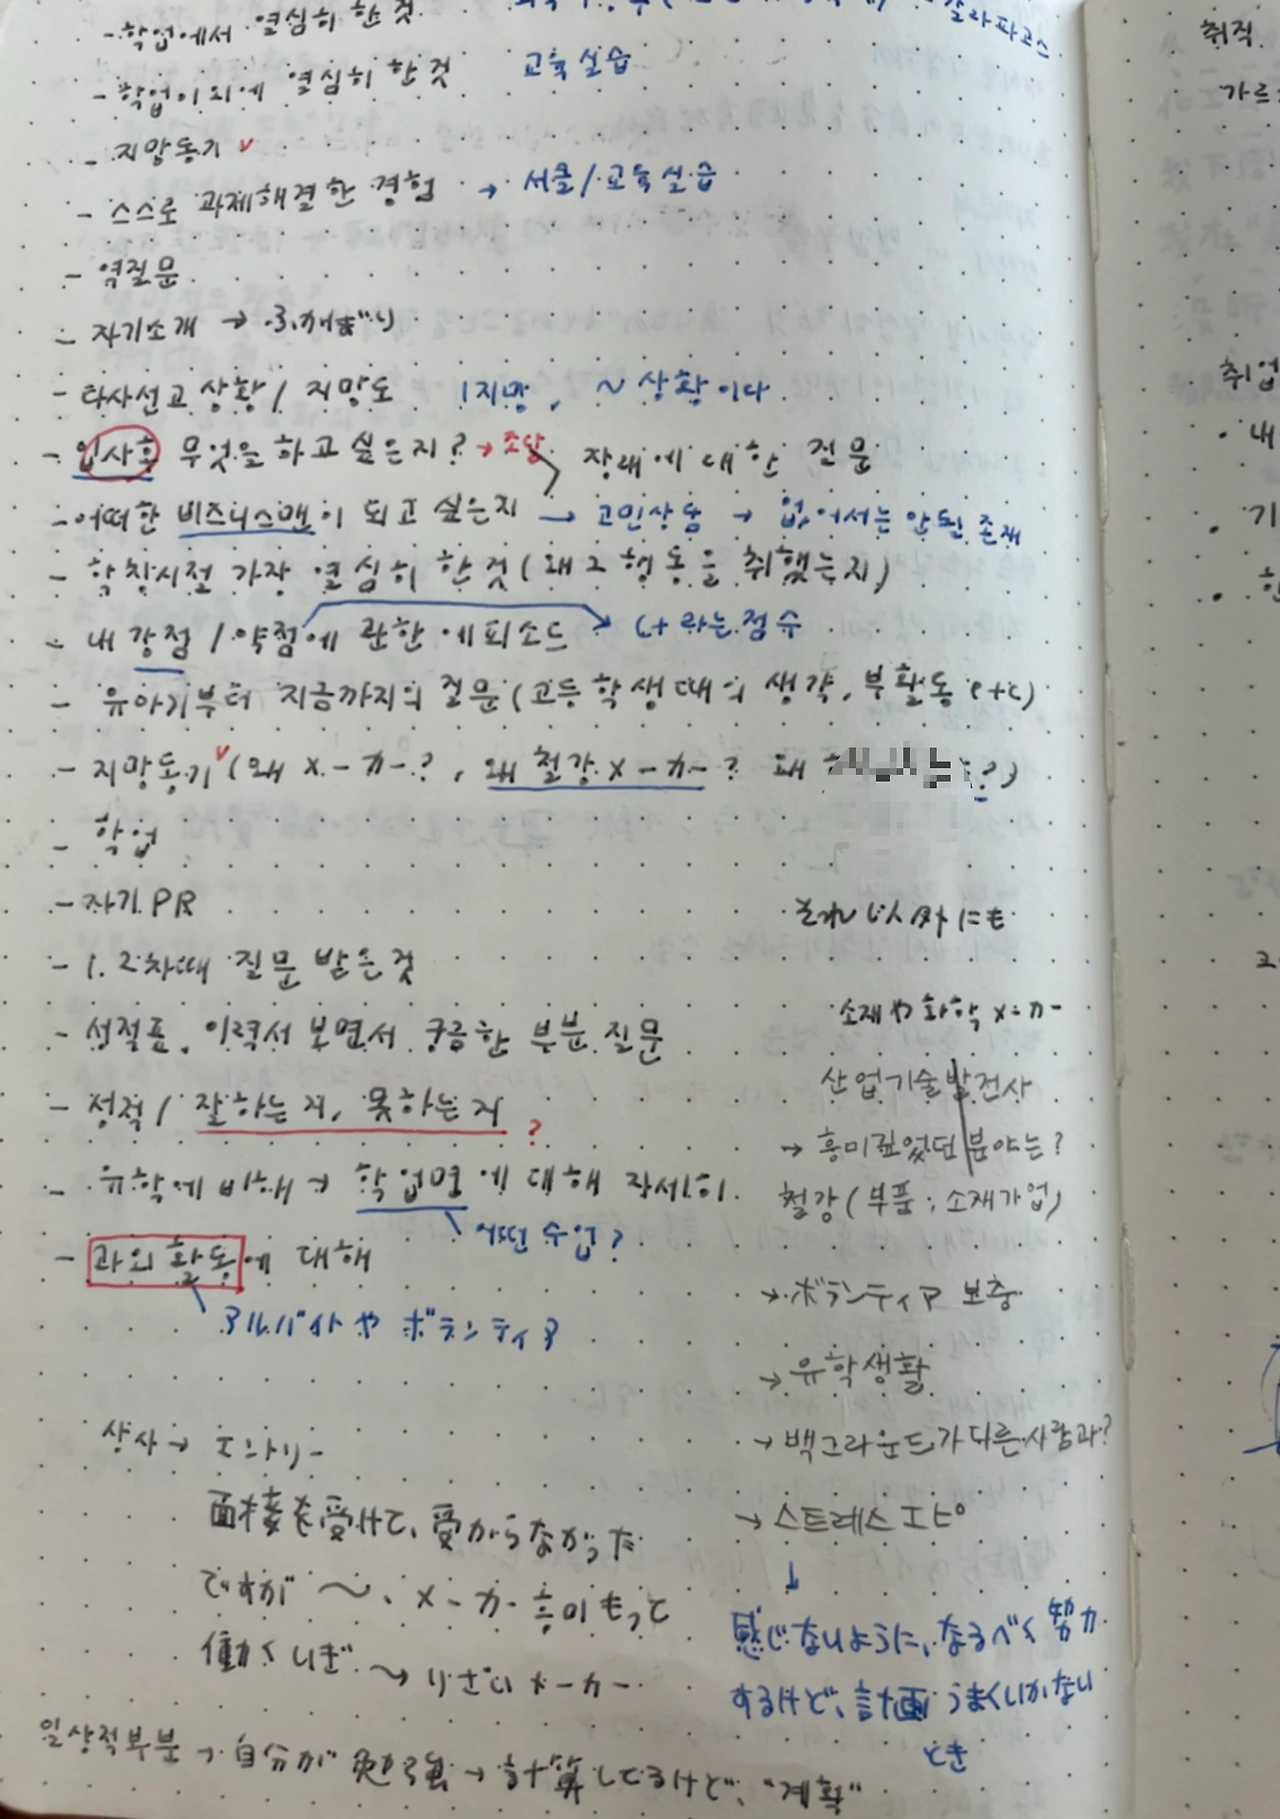 - 학업에서 열심히 한 것
갈라파고스
- 학업이외에 열심히 한 것 교육실습
- 지망동기 v
- 스스로 과제해결한 경험 → 서클/교육실습
- 역질문
- 자기소개 → ふかぼり
- 타사선고 상황/ 지망도 1지망, ~상황이다
- 입사후 무엇을 하고 싶은지? → 조달 장래에 대한 질문
- 어떠한 비즈니스맨이 되고 싶은지 → 고민상담 → 없어서는 안될 존재
- 학창시절 가장 열심히 한것(왜 그 행동을 취했는지)
- 내 강점/약점에 관한 에피소드 → C+ 라는 점수
- 유아기부터 지금까지의 질문(고등학생때의 생각, 부활동 etc)
- 지망동기 v (왜 メーカー?, 왜 철강メーカー? 왜 ?)
- 학업
- 자기PR
それ以外にも
- 1. 2차때 질문 받은것
- 성적표, 이력서 보면서 궁금한 부분 질문
소재や화학メーカー
- 성적/ 잘하는지, 못하는지 ?
산업기술발전사
→ 흥미깊었던 분야는?
- 유학에 비해 → 학업면에 대해 자세히
철강(부품:소재가업)
어떤 수업?
- 과외 활동에 대해
→ ボランティア 보충
アルバイトや ボランティア
→ 유학생활
상사→ エントリー
→ 백그라운드가 다른 사람과?
面接を受けて、受からなかった
→ 스트레스 エピ
ですが ~、メーカー
働く
メーカー
感じないように、なるべく努力
するけど、計画 うまくいかない
とき
일상적부분 → 自分が 勉強 → 計算してるけど、"계획"
취직
가르
취업
· 내
· 기